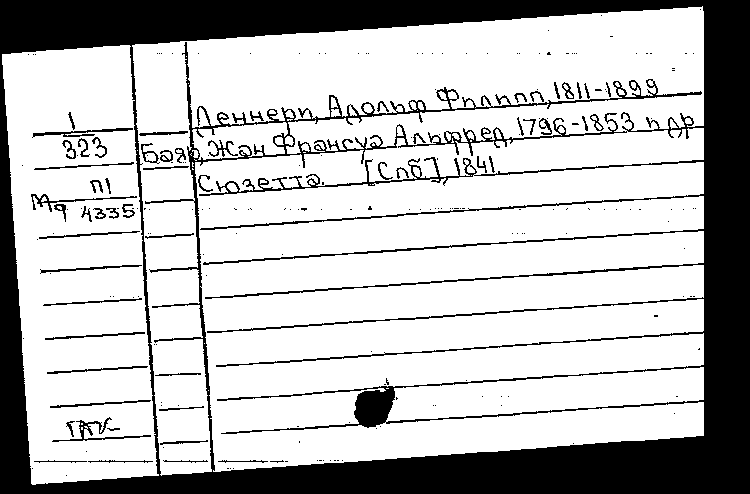 Деннери, Адольф Филипп, 1811-1899
1
323 Бояр, Жан Франсуа Альфред, 1796-1853 и др
П1 Сюзетта. [Спб], 1841.
Мф 4335